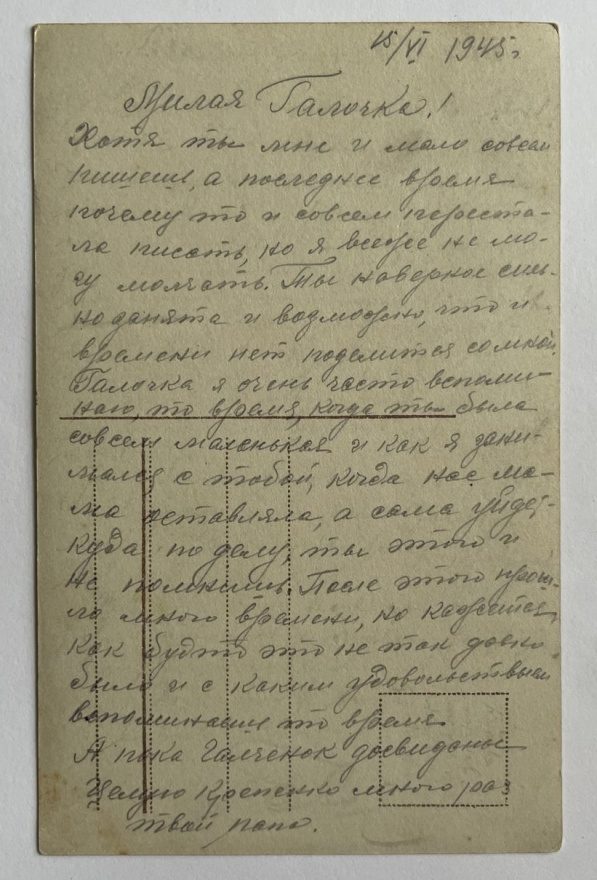 15/VI 1945г
Милая Галочка!
Хотя ты мне и мало совсем
пишеш, а последнее время
почему то и совсем переста-
ла писать, но я всеже не мо-
гу молчать. Ты наверное силь-
но занята и возможно, что и
времени нет поделится со мной.
Галочка я очень часто вспоми-
наю, то время, когда ты была
совсем маленькая и как я зани-
мался с тобой, когда нас ма-
ма оставляла, а сама уйдет
куда по делу, ты этого и
не помнишь. После этого прош-
ло много времени, но кажется
как будто это не так давно
было и с каким удовольствием
вспоминаеш то время
А пока Галченок досвиданье
Целую крепенко много раз
твой папа.